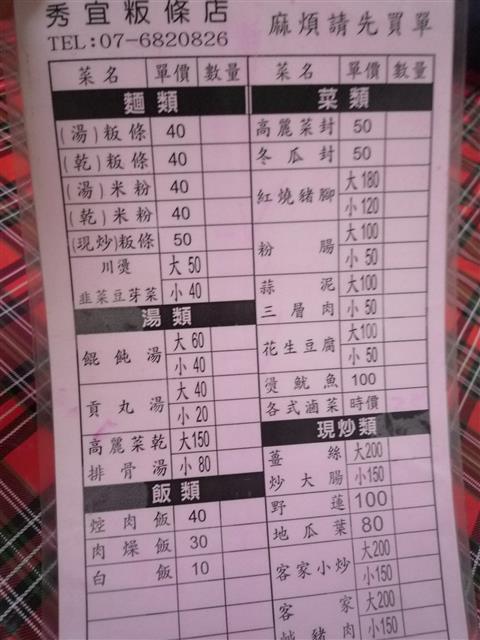 秀宜粄條店
TEL:07-6820826
麻煩請先買單
菜名 單價 數量
麵類
(湯)粄條 40
(乾)粄條 40
(湯)米粉 40
(乾)米粉 40
(現炒)粄條 50
川燙 大 50
韭菜豆芽菜 小 40
湯類
餛飩湯 大 60
小 40
貢丸湯 大 40
小 20
高麗菜乾 大150
排骨湯 小 80
飯類
焢肉飯 40
肉燥飯 30
白飯 10
菜名 單價 數量
菜類
高麗菜封 50
冬瓜封 50
紅燒豬腳 大 180
小 120
粉腸 大100
小 50
蒜泥 大100
三層肉 小 50
花生豆腐 大100
小 50
燙魷魚 100
各式滷菜 時價
現炒類
薑絲 大200
炒大腸 小150
野蓮 100
地瓜葉 80
客家小炒 大200
小150
客家 大200
豬肉 小150